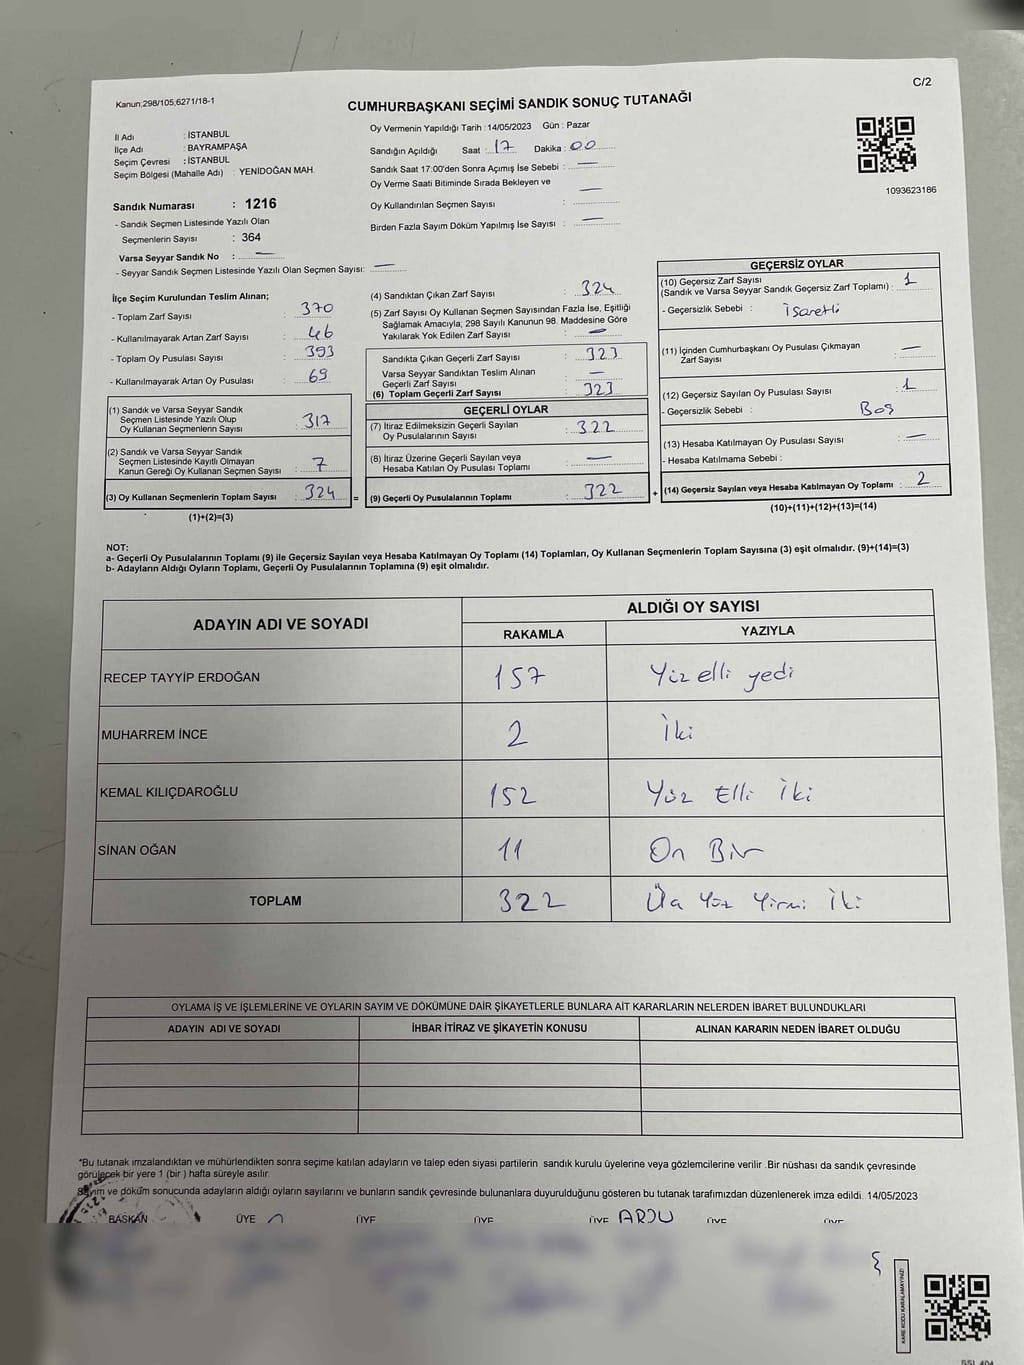 C/2
Kanun;298/105;6271/18-1
CUMHURBAŞKANI SEÇİMİ SANDIK SONUÇ TUTANAĞI
İl Adı : İSTANBUL
İlçe Adı : BAYRAMPAŞA
Seçim Çevresi : İSTANBUL
Seçim Bölgesi (Mahalle Adı) : YENİDOĞAN MAH.
Sandık Numarası : 1216
- Sandık Seçmen Listesinde Yazılı Olan
Seçmenlerin Sayısı : 364
Varsa Seyyar Sandık No : —
- Seyyar Sandık Seçmen Listesinde Yazılı Olan Seçmen Sayısı: —
Oy Vermenin Yapıldığı Tarih : 14/05/2023 Gün : Pazar
Sandığın Açıldığı Saat : 17 Dakika : 00
Sandık Saat 17:00'den Sonra Açımış İse Sebebi : —
Oy Verme Saati Bitiminde Sırada Bekleyen ve
Oy Kullandırılan Seçmen Sayısı : —
Birden Fazla Sayım Döküm Yapılmış İse Sayısı : —
1093623186
İlçe Seçim Kurulundan Teslim Alınan;
- Toplam Zarf Sayısı : 370
- Kullanılmayarak Artan Zarf Sayısı : 46
- Toplam Oy Pusulası Sayısı : 393
- Kullanılmayarak Artan Oy Pusulası : 69
(1) Sandık ve Varsa Seyyar Sandık
Seçmen Listesinde Yazılı Olup
Oy Kullanan Seçmenlerin Sayısı : 317
(2) Sandık ve Varsa Seyyar Sandık
Seçmen Listesinde Kayıtlı Olmayan
Kanun Gereği Oy Kullanan Seçmen Sayısı : 7
(3) Oy Kullanan Seçmenlerin Toplam Sayısı : 324 =
(1)+(2)=(3)
(4) Sandıktan Çıkan Zarf Sayısı : 324
(5) Zarf Sayısı Oy Kullanan Seçmen Sayısından Fazla İse, Eşitliği
Sağlamak Amacıyla, 298 Sayılı Kanunun 98. Maddesine Göre
Yakılarak Yok Edilen Zarf Sayısı : —
Sandıkta Çıkan Geçerli Zarf Sayısı : 323
Varsa Seyyar Sandıktan Teslim Alınan
Geçerli Zarf Sayısı : —
(6) Toplam Geçerli Zarf Sayısı : 323
GEÇERLİ OYLAR
(7) İtiraz Edilmeksizin Geçerli Sayılan
Oy Pusulalarının Sayısı : 322
(8) İtiraz Üzerine Geçerli Sayılan veya
Hesaba Katılan Oy Pusulası Toplamı : —
(9) Geçerli Oy Pusulalarının Toplamı : 322 +
GEÇERSİZ OYLAR
(10) Geçersiz Zarf Sayısı
(Sandık ve Varsa Seyyar Sandık Geçersiz Zarf Toplamı) : 1
- Geçersizlik Sebebi : İşaretli
(11) İçinden Cumhurbaşkanı Oy Pusulası Çıkmayan
Zarf Sayısı : —
(12) Geçersiz Sayılan Oy Pusulası Sayısı : 1
- Geçersizlik Sebebi : Boş
(13) Hesaba Katılmayan Oy Pusulası Sayısı : —
- Hesaba Katılmama Sebebi :
(14) Geçersiz Sayılan veya Hesaba Katılmayan Oy Toplamı : 2
(10)+(11)+(12)+(13)=(14)
NOT:
a- Geçerli Oy Pusulalarının Toplamı (9) ile Geçersiz Sayılan veya Hesaba Katılmayan Oy Toplamı (14) Toplamları, Oy Kullanan Seçmenlerin Toplam Sayısına (3) eşit olmalıdır. (9)+(14)=(3)
b- Adayların Aldığı Oyların Toplamı, Geçerli Oy Pusulalarının Toplamına (9) eşit olmalıdır.
ADAYIN ADI VE SOYADI ALDIĞI OY SAYISI
RAKAMLA YAZIYLA
RECEP TAYYİP ERDOĞAN 157 Yüz elli yedi
MUHARREM İNCE 2 İki
KEMAL KILIÇDAROĞLU 152 Yüz Elli İki
SİNAN OĞAN 11 On Bir
TOPLAM 322 Üç Yüz Yirmi İki
OYLAMA İŞ VE İŞLEMLERİNE VE OYLARIN SAYIM VE DÖKÜMÜNE DAİR ŞİKAYETLERLE BUNLARA AİT KARARLARIN NELERDEN İBARET BULUNDUKLARI
ADAYIN ADI VE SOYADI İHBAR İTİRAZ VE ŞİKAYETİN KONUSU ALINAN KARARIN NEDEN İBARET OLDUĞU
*Bu tutanak imzalandıktan ve mühürlendikten sonra seçime katılan adayların ve talep eden siyasi partilerin sandık kurulu üyelerine veya gözlemcilerine verilir .Bir nüshası da sandık çevresinde
görülecek bir yere 1 (bir ) hafta süreyle asılır.
Sayım ve döküm sonucunda adayların aldığı oyların sayılarını ve bunların sandık çevresinde bulunanlara duyurulduğunu gösteren bu tutanak tarafımızdan düzenlenerek imza edildi. 14/05/2023
BAŞKAN ÜYE ÜYE ÜYE ÜYE ÜYE ÜYE
KARE KODU KARALAMAYINIZ!